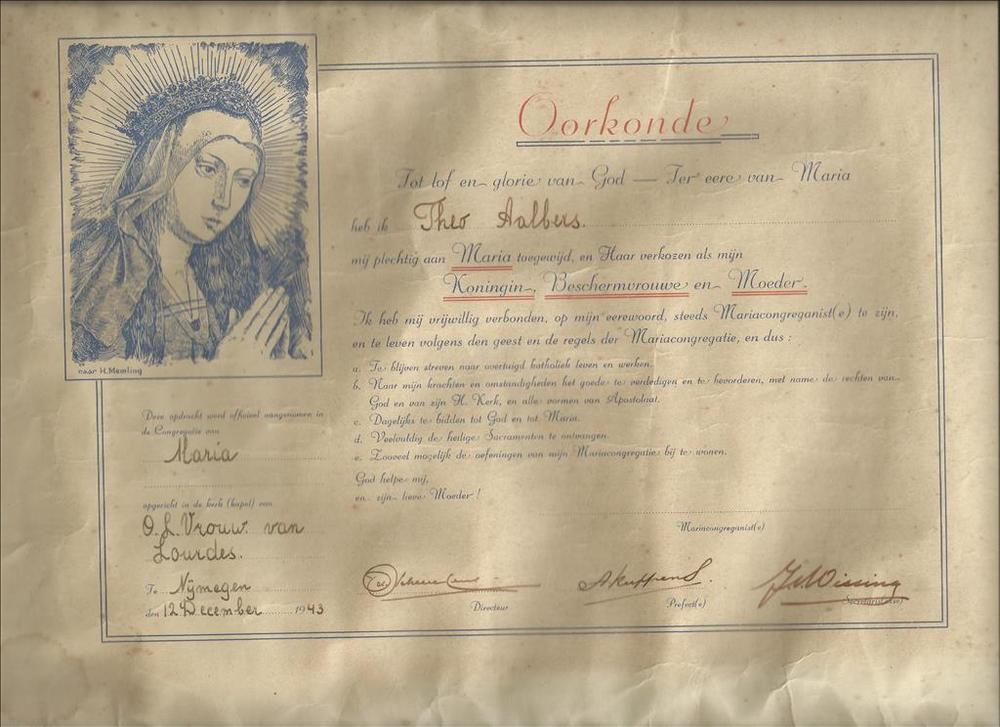 Oorkonde
Tot lof en glorie van God — Ter eere van Maria
heb ik Theo Aalbers.
mij plechtig aan Maria toegewijd, en Haar verkozen als mijn
Koningin, Beschermvrouwe en Moeder.
Ik heb mij vrijwillig verbonden, op mijn eerewoord, steeds Mariacongreganist(e) te zijn,
en te leven volgens den geest en de regels der Mariacongregatie, en dus :
a. Te blijven streven naar overtuigd katholiek leven en werken.
b. Naar mijn krachten en omstandigheden het goede te verdedigen en te bevorderen, met name de rechten van
God en van zijn H. Kerk, en alle vormen van Apostolaat.
c. Dagelijks te bidden tot God en tot Maria.
d. Veelvuldig de heilige Sacramenten te ontvangen.
e. Zooveel mogelijk de oefeningen van mijn Mariacongregatie bij te wonen.
God helpe mij,
en zijn lieve Moeder !
Mariacongreganist(e)
Directeur
A Kuppens.
Prefect(e)
J. Wissing
Secretaris(se)
naar H. Memling
Deze opdracht werd officieel aangenomen in
de Congregatie van
Maria
opgericht in de kerk (kapel) van
O. L. Vrouw van
Lourdes.
Te Nijmegen
den 12 December 1943